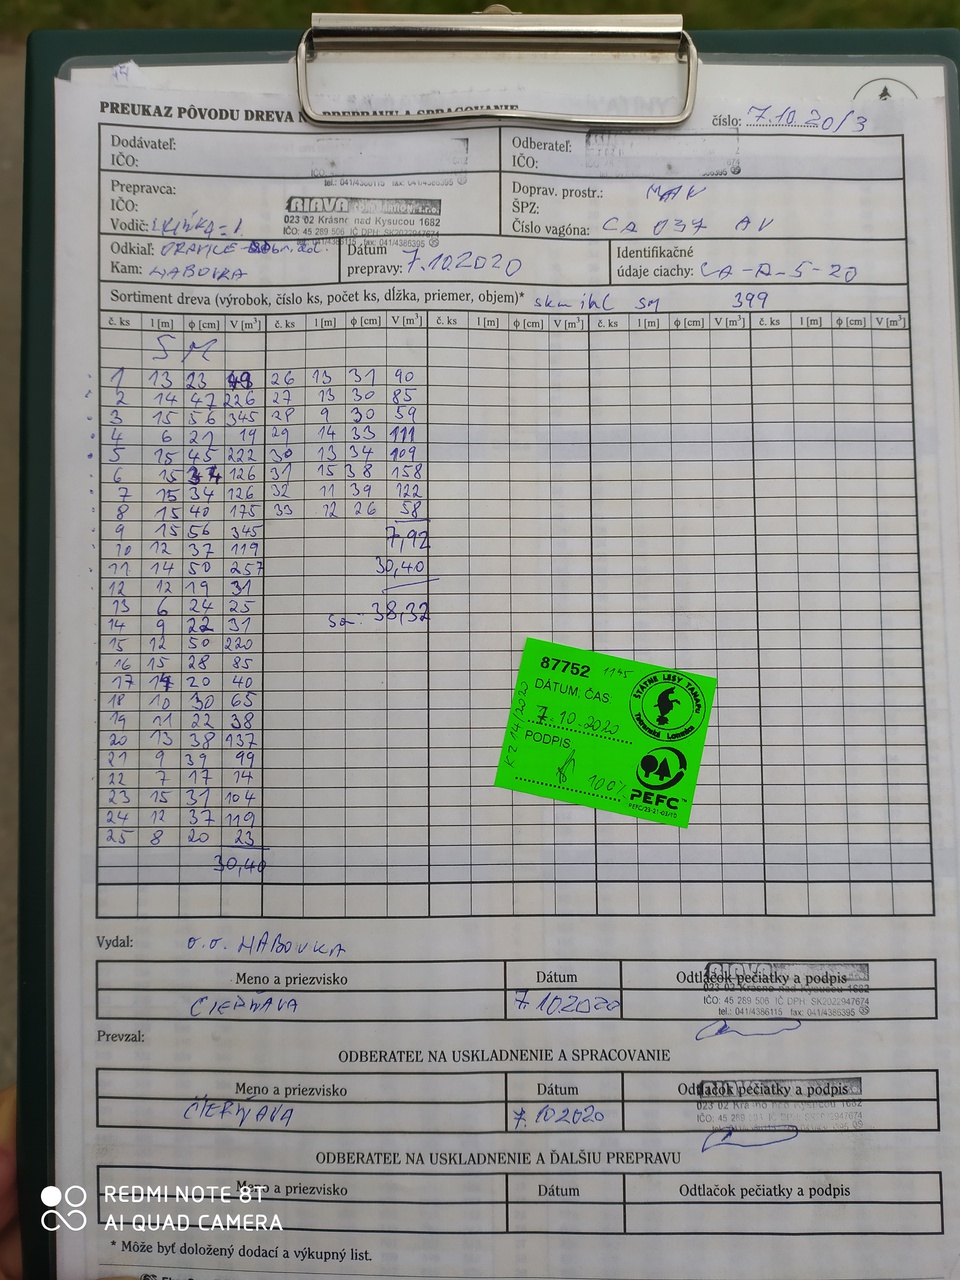 PREUKAZ PÔVODU DREVA NA PREPRAVU A SPRACOVANIE
číslo: 7.10.20/3
Dodávateľ:
IČO:
Odberateľ:
IČO:
tel.: 041/4386115 fax: 041/4386395
Prepravca:
IČO:
Vodič:
RIAVA
023 02 Krásno nad Kysucou 1682
IČO: 45 289 506 IČ DPH: SK2022947674
tel.: 041/4386115 fax: 041/4386395
Doprav. prostr.: MAN
ŠPZ:
Číslo vagóna: CA 037 AV
Odkiaľ: ORAVICE
Kam: HABOVKA
Dátum prepravy: 7.10.2020
Identifikačné
údaje ciachy: CA-A-5-20
Sortiment dreva (výrobok, číslo ks, počet ks, dĺžka, priemer, objem)* sm 399
č. ks l [m] ϕ [cm] V [m³] č. ks l [m] ϕ [cm] V [m³] č. ks l [m] ϕ [cm] V [m³] č. ks l [m] ϕ [cm] V [m³] č. ks l [m] ϕ [cm] V [m³]
SM
1 13 23 49 26 13 31 90
2 14 47 226 27 13 30 85
3 15 56 345 28 9 30 59
4 6 21 19 29 14 33 111
5 15 45 222 30 13 34 109
6 15 34 126 31 15 38 158
7 15 34 126 32 11 39 122
8 15 40 175 33 12 26 58
9 15 56 345 7,92
10 12 37 119
11 14 50 257 30,40
12 12 19 31
13 6 24 25
14 9 22 31 38,32
15 12 50 220
16 15 28 85
17 14 20 40
18 10 30 65
19 11 22 38
20 13 38 137
21 9 39 99
22 7 17 14
23 15 31 104
24 12 37 119
25 8 20 23
30,40
87752 1145
DÁTUM, ČAS:
7.10.2020
PODPIS
100%
KZ 14/2020
ŠTÁTNE LESY TANAPU
Tatranská Lomnica
PEFC™
PEFC/23-21-03/10
Vydal: o.o. HABOVKA
Meno a priezvisko Dátum Odtlačok pečiatky a podpis
ČIERŇAVA 7.10.2020
RIAVA
023 02 Krásno nad Kysucou 1682
IČO: 45 289 506 IČ DPH: SK2022947674
tel.: 041/4386115 fax: 041/4386395
Prevzal:
ODBERATEĽ NA USKLADNENIE A SPRACOVANIE
Meno a priezvisko Dátum Odtlačok pečiatky a podpis
ČIERŇAVA 7.10.2020
ODBERATEĽ NA USKLADNENIE A ĎALŠIU PREPRAVU
Meno a priezvisko Dátum Odtlačok pečiatky a podpis
* Môže byť doložený dodací a výkupný list.
REDMI NOTE 8T
AI QUAD CAMERA